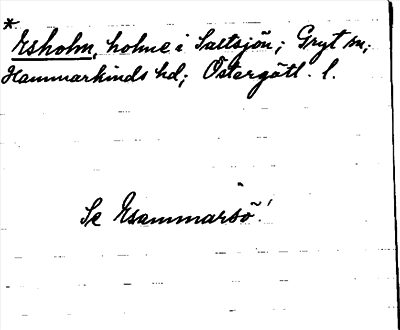 *
Esholm, holme i Saltsjön; Gryt sn;
Hammarkinds hd; Östergötl. l.
Se Esammarsö!